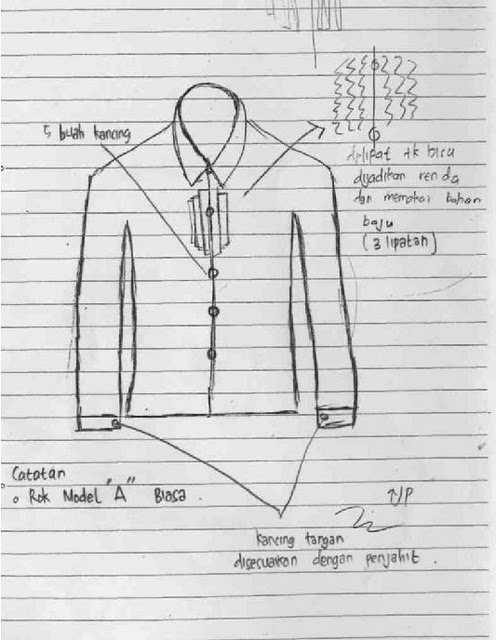 5 buah kancing
dilipat tk bisa
dijadikan renda
dan memakai bahan
baju
(3 lipatan)
Catatan
o Rok Model "A" Biasa .
kancing tangan
disecuaikan dengan penjahit .